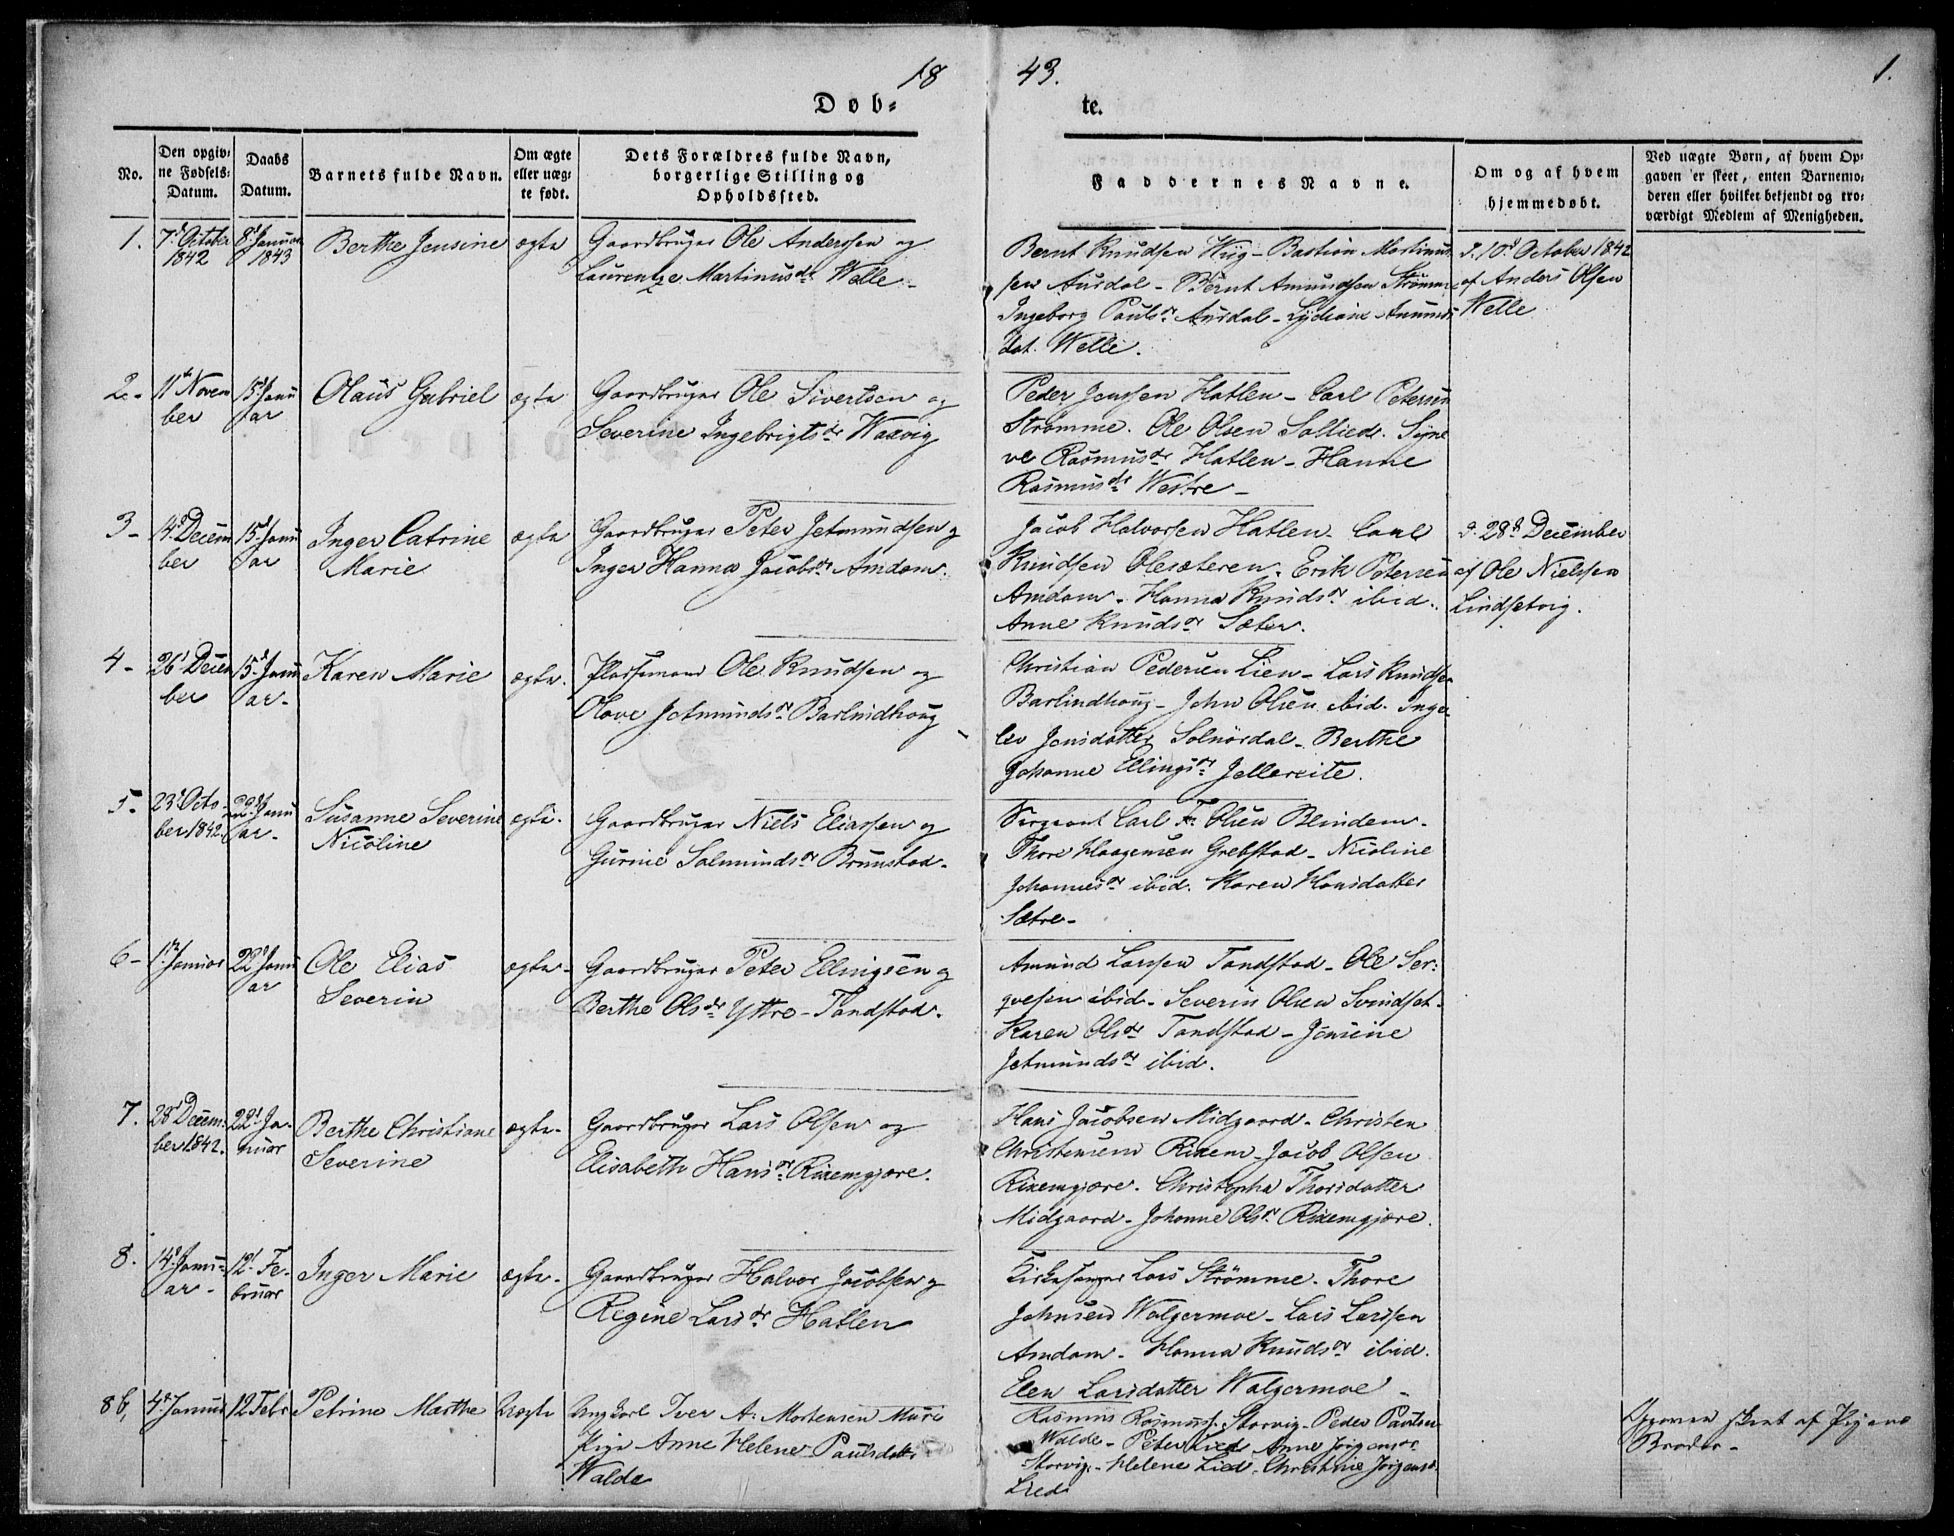 1843.
1.
Døbte.
No.
Den opgivne Fødsels-Datum.
Daabs Datum.
Barnets fulde Navn.
Om ægte eller uægte født.
Dets Forældres fulde Navn, borgerlige Stilling og Opholdssted.
Faddernes Navne.
Om og af hvem hjemmedøbt.
Ved uægte Børn, af hvem Opgaven er skeet, enten Barnemoderen eller hvilket bekjendt og troværdigt Medlem af Menigheden.
1.
7d October
1842
8d Januar
1843
Berthe Jensine
ægte
Gaardbruger Ole Anderssen og
Laurentze Martinusdr Welle
Bernt Knudsen Wiig - Bastian Martinus
sen Aursdal - Bernt Amundsen Strømme
Ingeborg Paulsdr Aursdal - Lydiane Amunds
dat. Welle.
d. 10d October 1842
af Anders Olsen
Welle
2.
11te Novem
ber
15d Janu
ar
Olaus Gabriel
ægte
Gaardbruger Ole Sivertsen og
Severine Ingebrigtsdr Waxvig
Peder Jenssen Hatlen - Carl Petersen
Strømme. Ole Olsen Sollied. Syne
ve Rasmusdr Hatlen - Hanne
Rasmusdr Westre -
3 -
14d Decem
ber
15d Janu
ar
Inger Catrine
Marie
ægte
Gaardbruger Peter Jetmundsen og
Inger Hanna Jacobsdr Amdam.
Jacob Halvorsen Hatlen - Carl
Knudsen Olesæteren. Erik Petersen
Amdam - Hanna Knudsdr ibid.
Anne Knudsdr Sæter.
d. 28d December
af Ole Nielssen
Lindsetvig.
4 -
26d Decem
ber
15d Janu
ar -
Karen Marie
ægte.
Pladsemand Ole Knudsen og
Olave Jetmundsdr Barlindhoug
Christian Pedersen Lien - Lars Knudsen
Barlindhoug - John Olsen ibid. Inge-
lev Jonsdatter Solnørdal - Berthe
Johanne Ellingsdr Jellereite.
5 -
23d Octo-
ber 1842.
22d Janu
ar -
Susanne Severine
Nicoline
ægte.
Gaardbruger Niels Eliassen og
Gurine Salmundsdr Brunstad.
Sergeant Carl F. Olsen Blindem.
Thore Haagensen Grebstad - Nicoline
Johannesdr ibid. Karen Hansdatter
Sætre -
6 -
1te Januar
22d Janu
ar
Ole Elias
Severin
ægte -
Gaardbruger Peter Ellingsen og
Berthe Olsdr Yttre - Tandstad.
Amund Larssen Tandstad - Ole Ser-
qvesen ibid - Severin Olsen Svindset.
Karen Olsdr Tandstad - Jensine
Jetmundsdr ibid.
7.
28d Decem-
ber 1842.
22d Ja-
nuar
Berthe Christiane
Severine
ægte -
Gaardbruger Lars Olsen og
Elisabeth Hansdr Rixemgjære.
Hans Jacobsen Midgaard - Christen
Christensen Rixem - Jacob Olsen
Rixemgjære. Christopha Thorsdatter
Midgaard - Johanne Olsdr Rixemgjære.
8.
14d Janu-
ar -
12d Fe-
bruar
Inger Marie
ægte -
Gaardbruger Halvor Jacobsen og
Regine Larsdr Hatlen
Kirkesanger Lars Strømme - Thore
Johnsen Walgermoe - Lars Larssen
Amdam - Hanna Knudsdr ibid.
Elen Larsdatter Walgermoe -
8 b,
4d Januar
12 Febr
Petrine Marthe
Uægte
Ungkarl Iver A. Mortensen
Pige Anne Helene Paulsdatt
Walde
Rasmus Rasmuss. Storvig - Peder Paulsen
Walde - Peter Lied Anne Jørgensdr
Storvig - Helene Lied - Christine Jørgensd.
Lied
Opgaven skeet af Pigens
Broder -